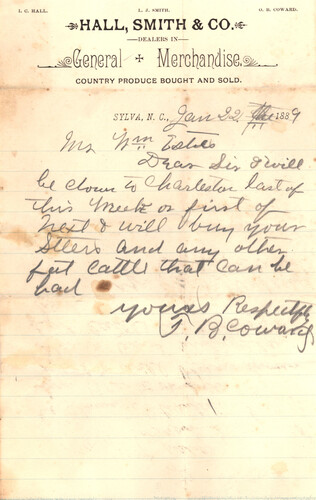 I. C. HALL. L. J. SMITH. O. B. COWARD.
HALL, SMITH & CO.
DEALERS IN
General Merchandise.
COUNTRY PRODUCE BOUGHT AND SOLD.
SYLVA, N. C., Jan 22 1889
Mr Wm Estes
Dear Sir I will
be down to Charleston last of
this Week or first of
next I will buy your
Steers and any other
fat cattle that can be
had
yours Respectfly
B. Coward